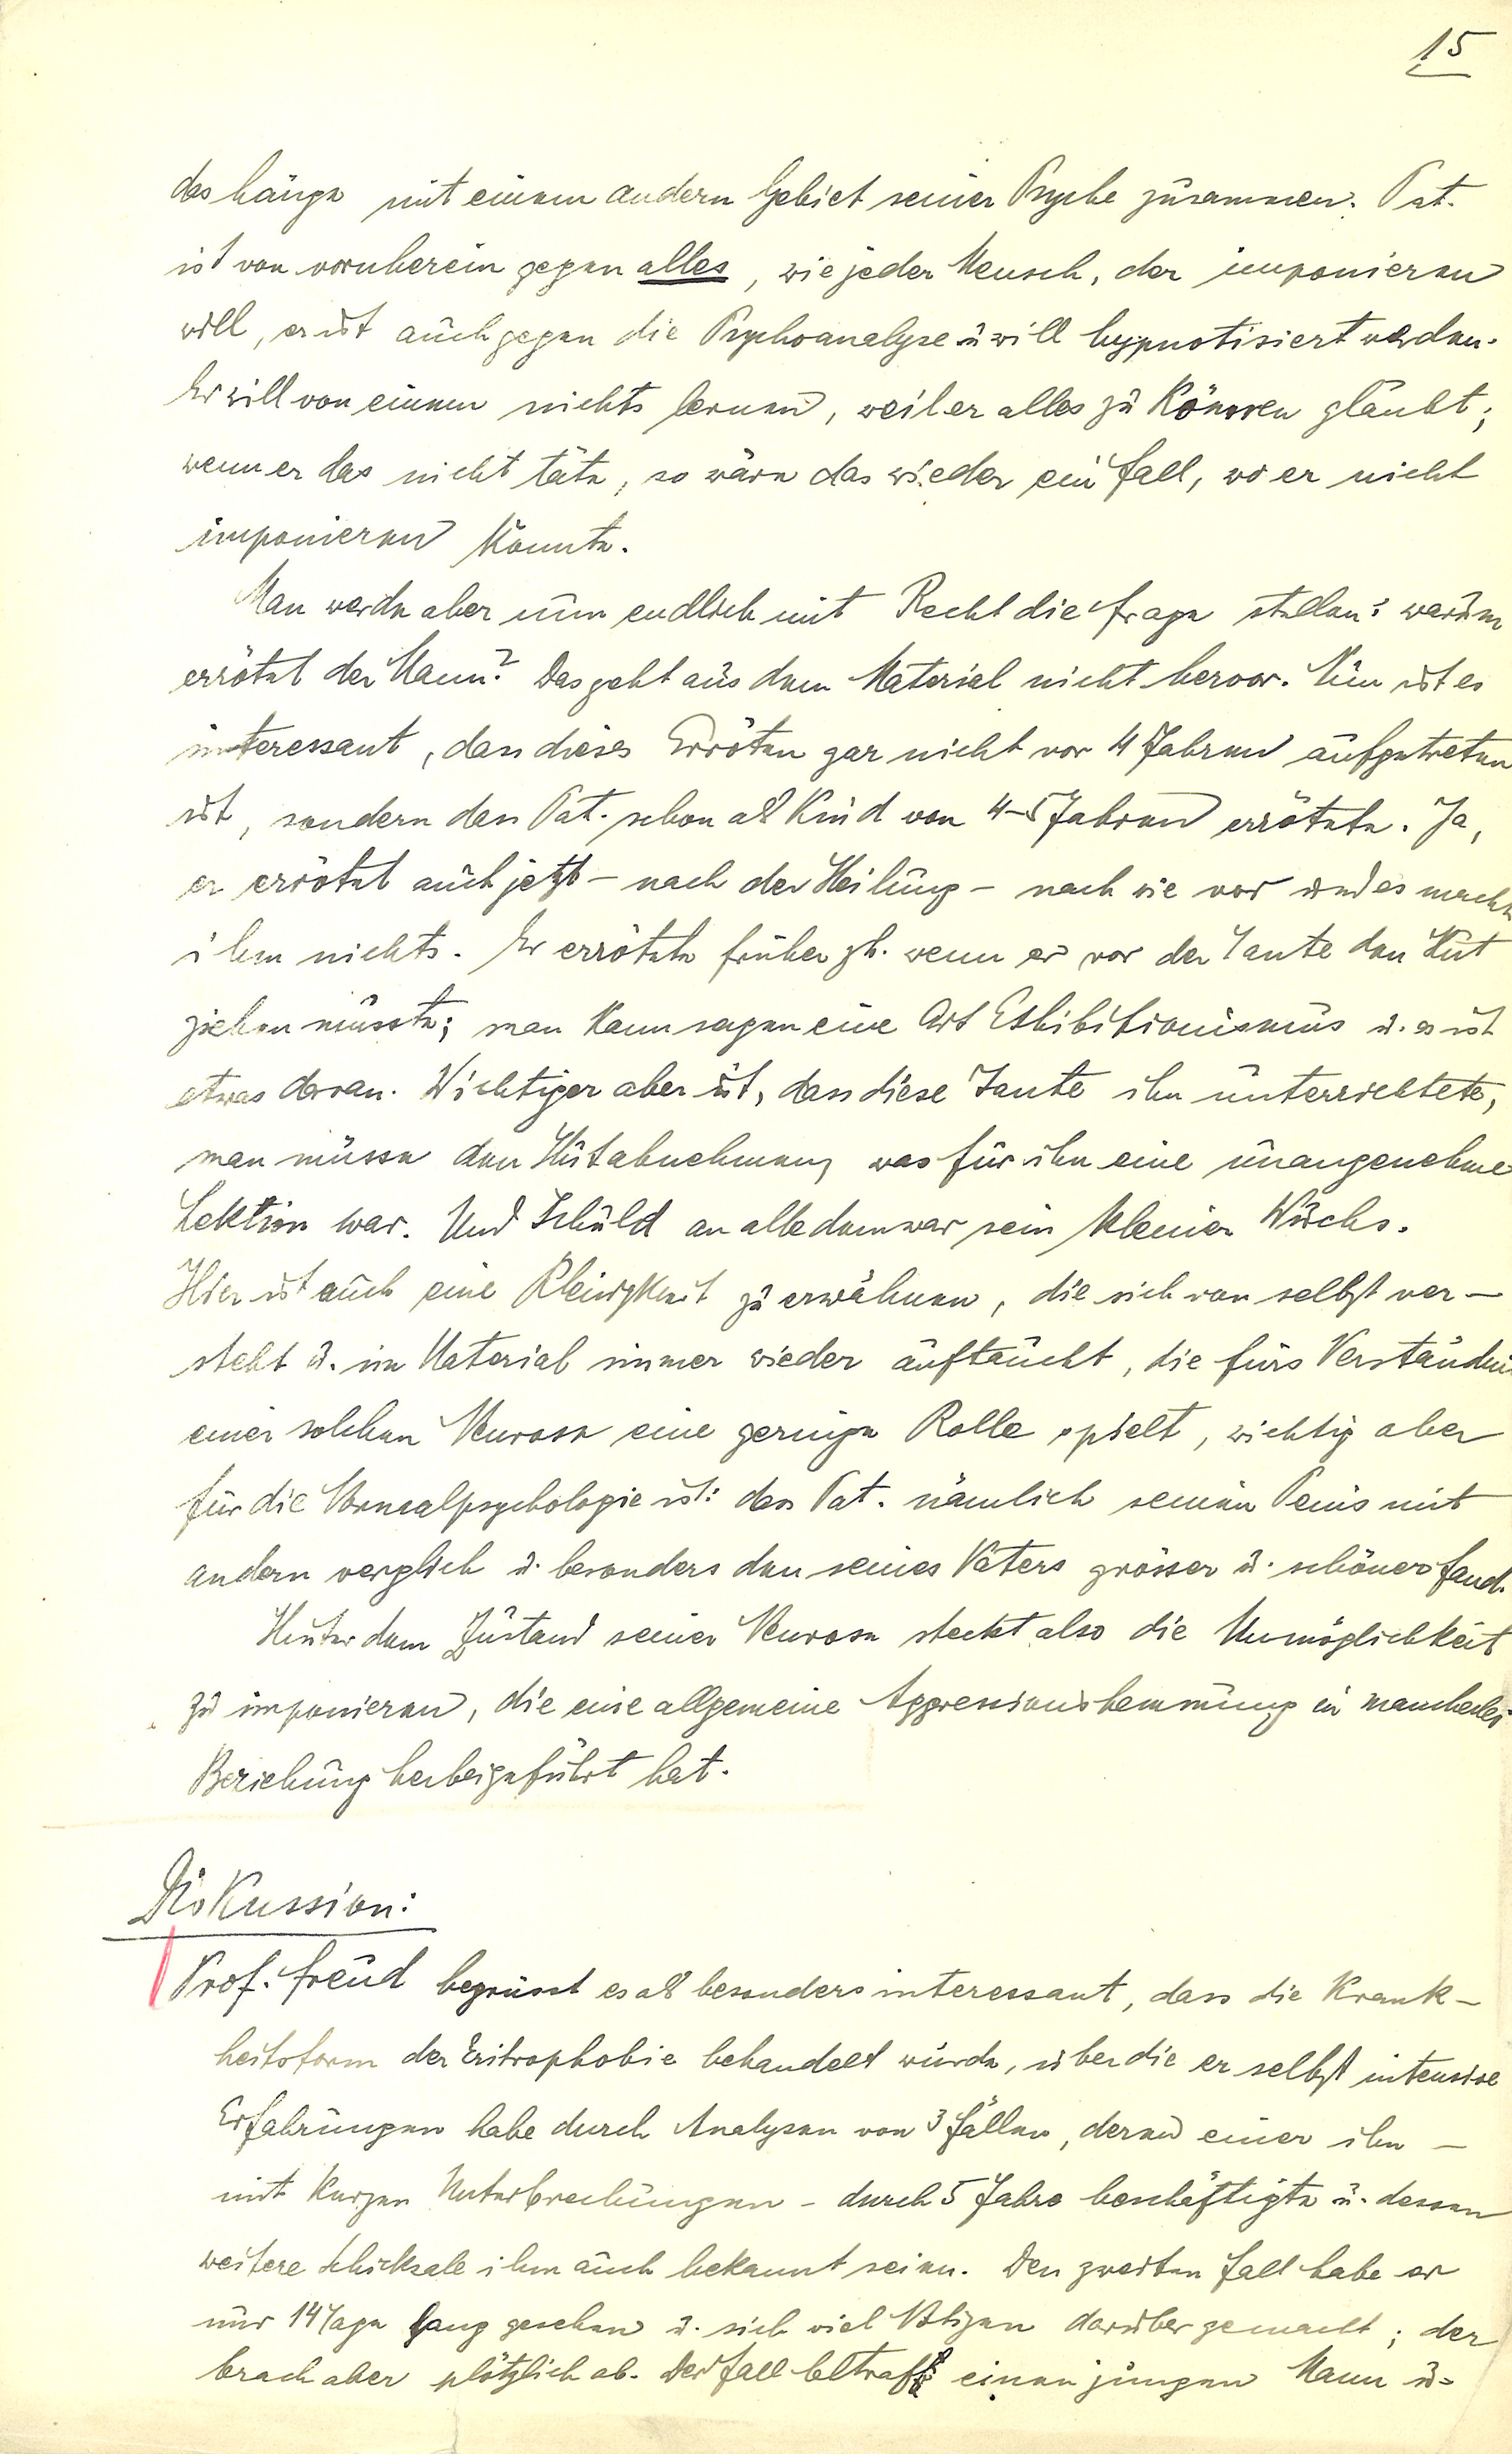 15
das hänge mit einem andern Gebiet seiner Psyche zusammen. Pat.
ist von vornherein gegen alles, wie jeder Mensch, der imponieren
will, er ist auch gegen die Psychoanalyse u will hypnotisiert werden.
Er will von einem nichts lernen, weil er alles zu können glaubt;
wenn er das nicht täte, so wäre das wieder ein Fall, wo er nicht
imponieren könnte.
Man werde aber nun endlich mit Recht die Frage stellen: warum
errötet der Mann? Das geht aus dem Material nicht hervor. Nun ist es
interessant, dass dieses Erröten gar nicht vor 4 Jahren aufgetreten
ist, sondern dass Pat. schon als Kind von 4-5 Jahren errötete. Ja,
er errötet auch jetzt – nach der Heilung – nach wie vor und es macht
ihm nichts. Er errötete früher zb. wenn er vor der Tante den Hut
ziehen musste; man kann sagen eine Art Exhibitionismus u. es ist
etwas daran. Wichtiger aber ist, dass diese Tante ihn unterrichtete,
man müsse den Hut abnehmen, was für ihn eine unangenehme
Lektion war. Und Schuld an alledem war sein kleiner Wuchs.
Hier ist auch eine Kleinigkeit zu erwähnen, die sich von selbst ver-
steht u. im Material immer wieder auftaucht, die fürs Verständnis
einer solchen Neurose eine geringe Rolle spielt, wichtig aber
für die Normalpsychologie ist: dass Pat. nämlich seinen Penis mit
andern verglich u. besonders den seines Vaters grösser u. schöner fand.
Hinter dem Zustand seiner Neurose steckt also die Unmöglichkeit
zu imponieren, die eine allgemeine Aggressionshemmung in mancherlei
Beziehung herbeigeführt hat.
Diskussion:
Prof. Freud begrüsst es als besonders interessant, dass die Krank-
heitsform der Eritrophobie behandelt wurde, über die er selbst intensive
Erfahrungen habe durch Analysen von 3 Fällen, deren einer ihn –
mit kurzen Unterbrechungen – durch 5 Jahre beschäftigte u. dessen
weitere Schicksale ihm auch bekannt seien. Den zweiten Fall habe er
nur 14 Tage lang gesehen u. sich viel Notizen darüber gemacht; der
brach aber plötzlich ab. Der Fall betraf einen jungen Mann u.